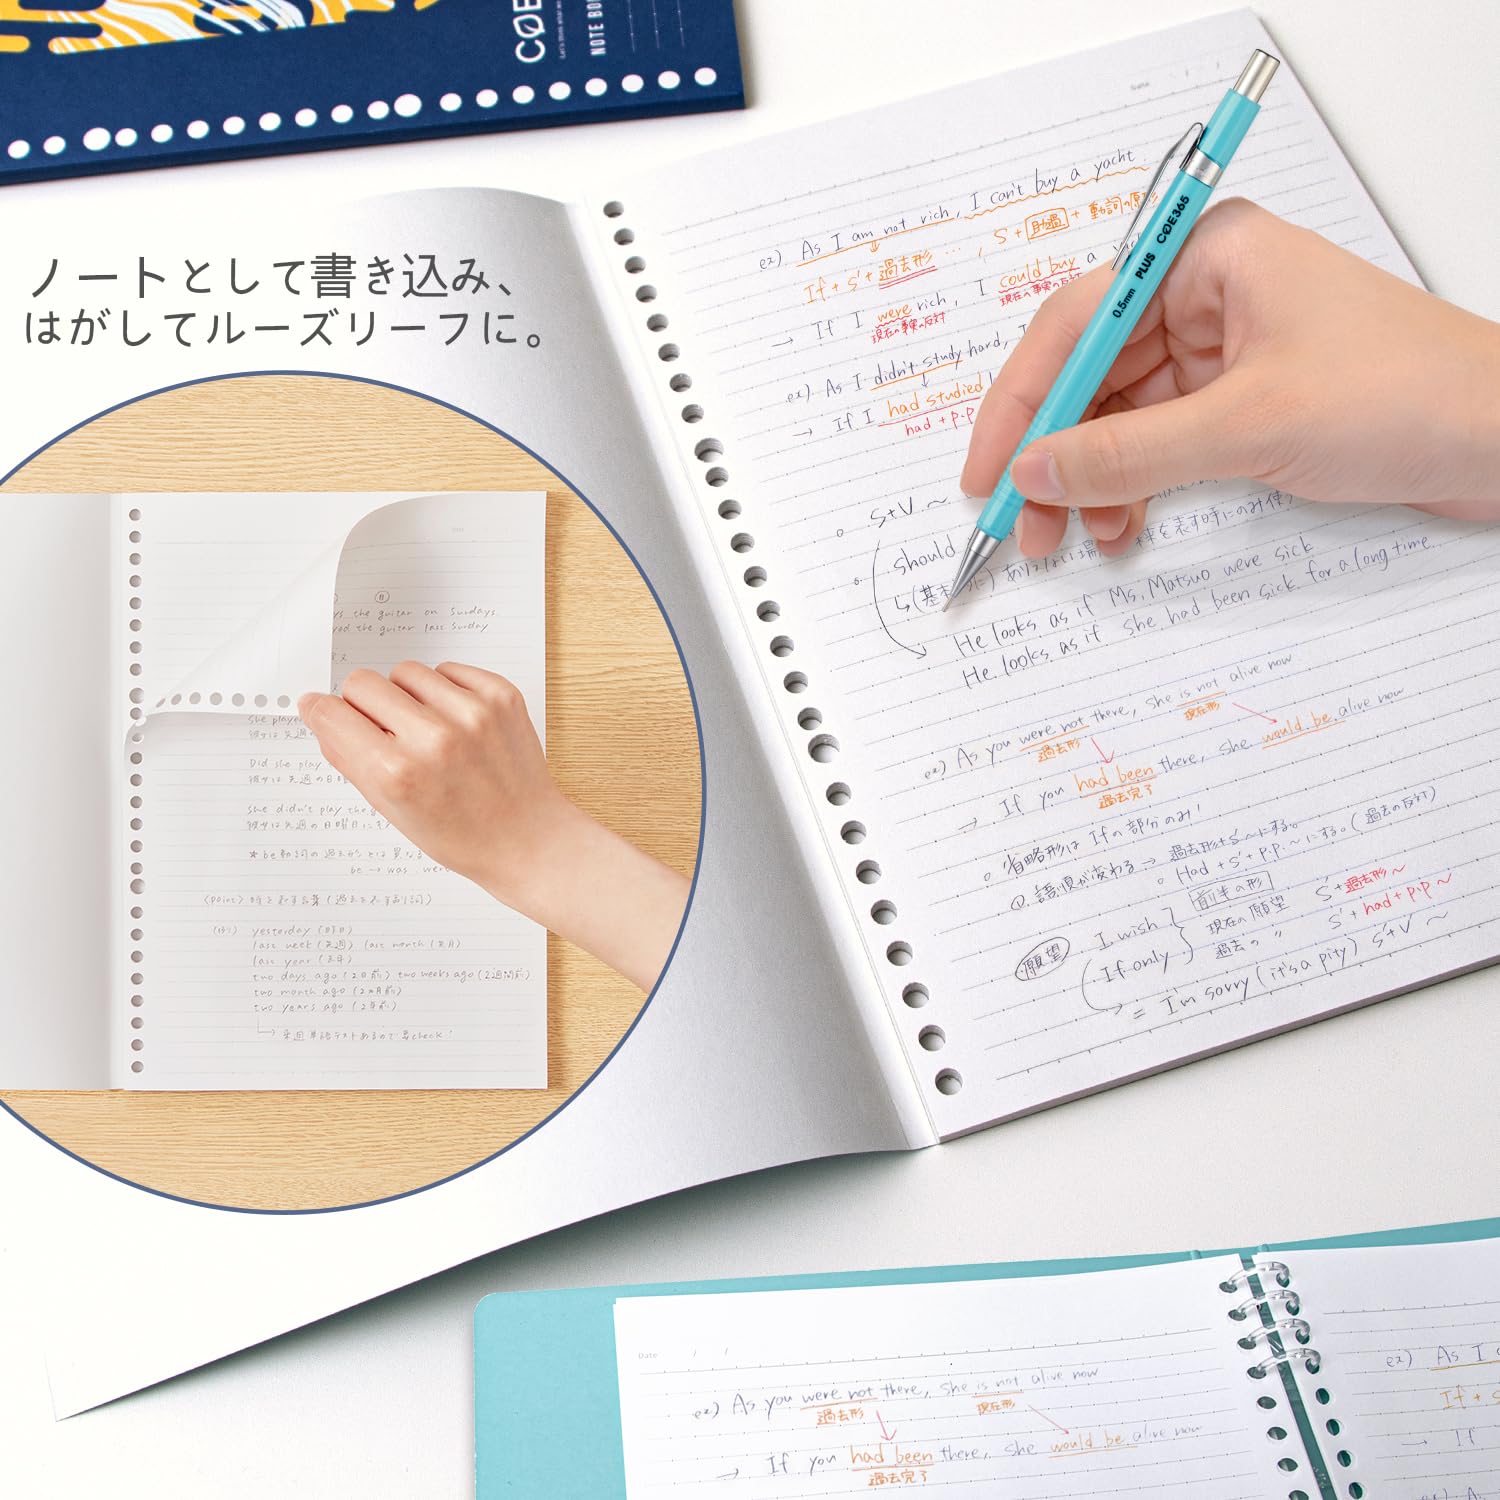 ノートとして書き込み、
はがしてルーズリーフに。
COE
NOTE BO
0.5mm PLUS COE365
Date / /
ex) As I am not rich, I can't buy a yacht.
If + S' + 過去形 … , S + 助過 + 動詞の原形
→ If I were rich, I could buy a yacht
現在の事実の反対 現在の事実の反対
ex) As I didn't study hard, I
→ If I had studied
had + p.p
S+V ~
should
He looks as if Ms. Matsuo were sick
He looks as if she had been sick for a long time.
ex) As you were not there, she is not alive now
過去形 現在形
→ If you had been there, she would be alive now
過去完了
省略形は Ifの部分のみ!
語順が変わる → 過去形+S'~にする。
Had + S' + p.p. ~ にする。(過去の反対)
前半の形
願望 I wish 現在の願望 S'+過去形~
If only 過去の 〃 S'+had+p.p~
= I'm sorry (it's a pity) S'+V ~
ys the guitar on Sundays.
yed the guitar last Sunday
she playe
彼女は先週の
Did she play
彼女は先週の日曜
she didn't play the g
彼女は先週の日曜日にギ
* be動詞の過去形とは異なる
be → was, were
<point> 時を表す言葉(過去を表す副詞)
(例) yesterday (昨日)
last week (先週) last month (先月)
last year (去年)
two days ago (2日前) two weeks ago (2週間前)
two month ago (2ヵ月前)
two years ago (2年前)
来週単語テストあるので要check!
Date / /
ex) As you were not there, she is not alive now
過去形 現在形
→ If you had been there, she would be alive now
過去完了
ex) As I
If + S
→ If